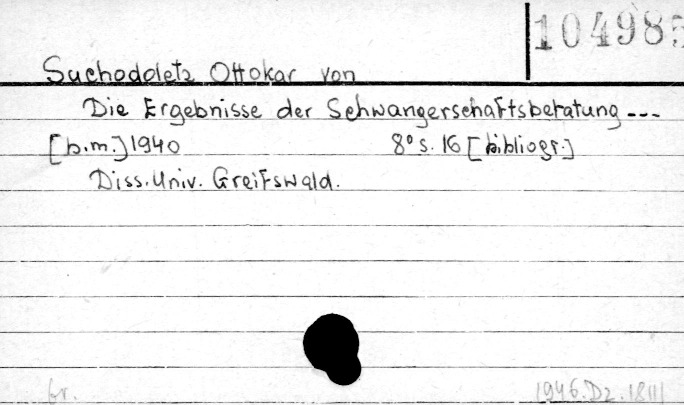 104985
Suchodoletz Ottokar von
Die Ergebnisse der Schwangerschaftsberatung ---
[b.m.] 1940 8° s. 16 [bibliogr.]
Diss. Univ. Greifswald.
1946.Dz.